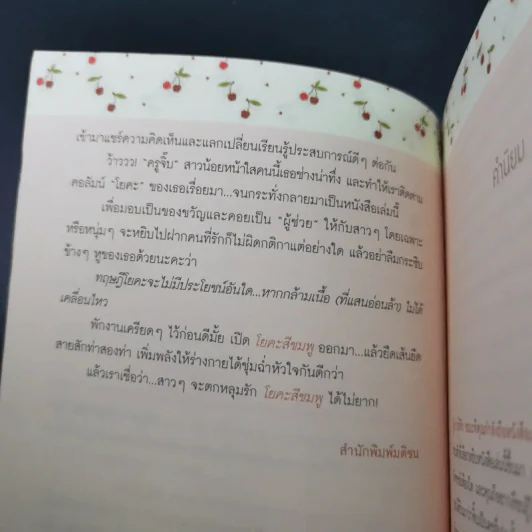 เข้ามาแชร์ความคิดเห็นและแลกเปลี่ยนเรียนรู้ประสบการณ์ดีๆ ต่อกัน
ว้าววว! "ครูจิ๊บ" สาวน้อยหน้าใสคนนี้เธอช่างน่าทึ่ง และทำให้เราติดตาม
คอลัมน์ "โยคะ" ของเธอเรื่อยมา...จนกระทั่งกลายมาเป็นหนังสือเล่มนี้
เพื่อมอบเป็นของขวัญและคอยเป็น "ผู้ช่วย" ให้กับสาวๆ โดยเฉพาะ
หรือหนุ่มๆ จะหยิบไปฝากคนที่รักก็ไม่ผิดกติกาแต่อย่างใด แล้วอย่าลืมกระซิบ
ข้างๆ หูของเธอด้วยนะคะว่า
ทฤษฎีโยคะจะไม่มีประโยชน์อันใด...หากกล้ามเนื้อ (ที่แสนอ่อนล้า) ไม่ได้
เคลื่อนไหว
พักงานเครียดๆ ไว้ก่อนดีมั้ย เปิด โยคะสีชมพู ออกมา...แล้วยืดเส้นยืด
สายสักท่าสองท่า เพิ่มพลังให้ร่างกายได้ชุ่มฉ่ำหัวใจกันดีกว่า
แล้วเราเชื่อว่า...สาวๆ จะตกหลุมรัก โยคะสีชมพู ได้ไม่ยาก!
สำนักพิมพ์มติชน
คำนิยม